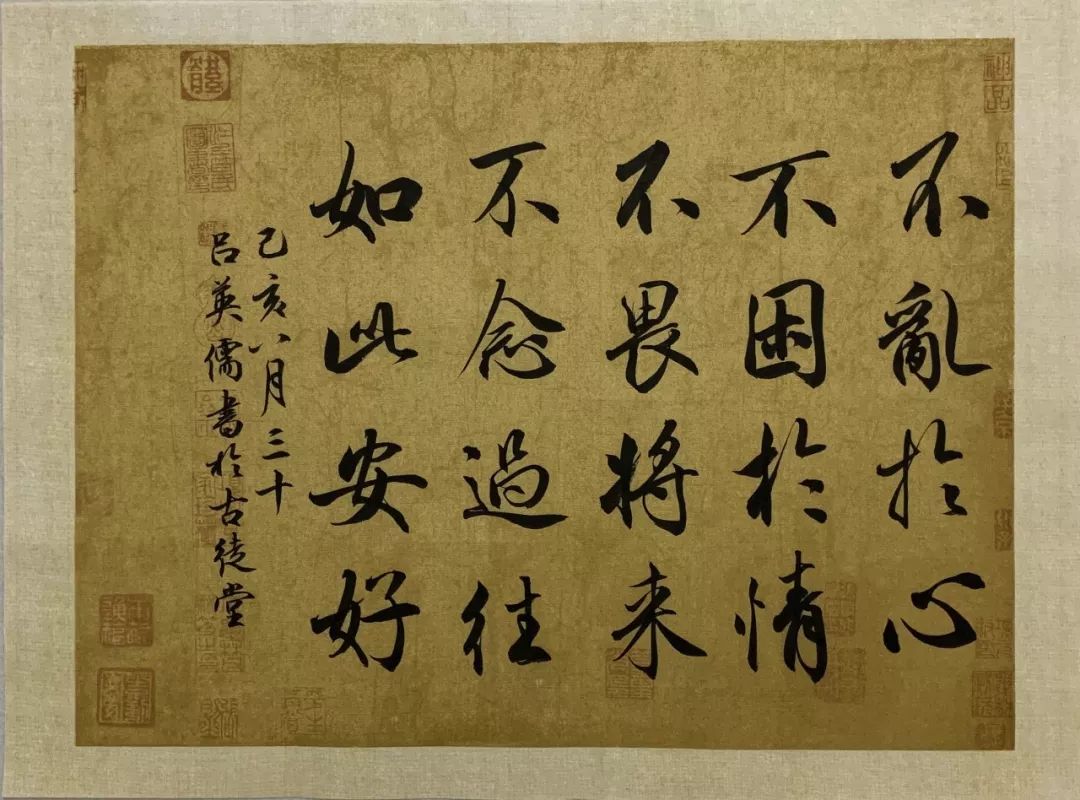 不亂於心
不困於情
不畏將来
不念過往
如此安好
己亥八月三十
吕英儒書於古徒堂